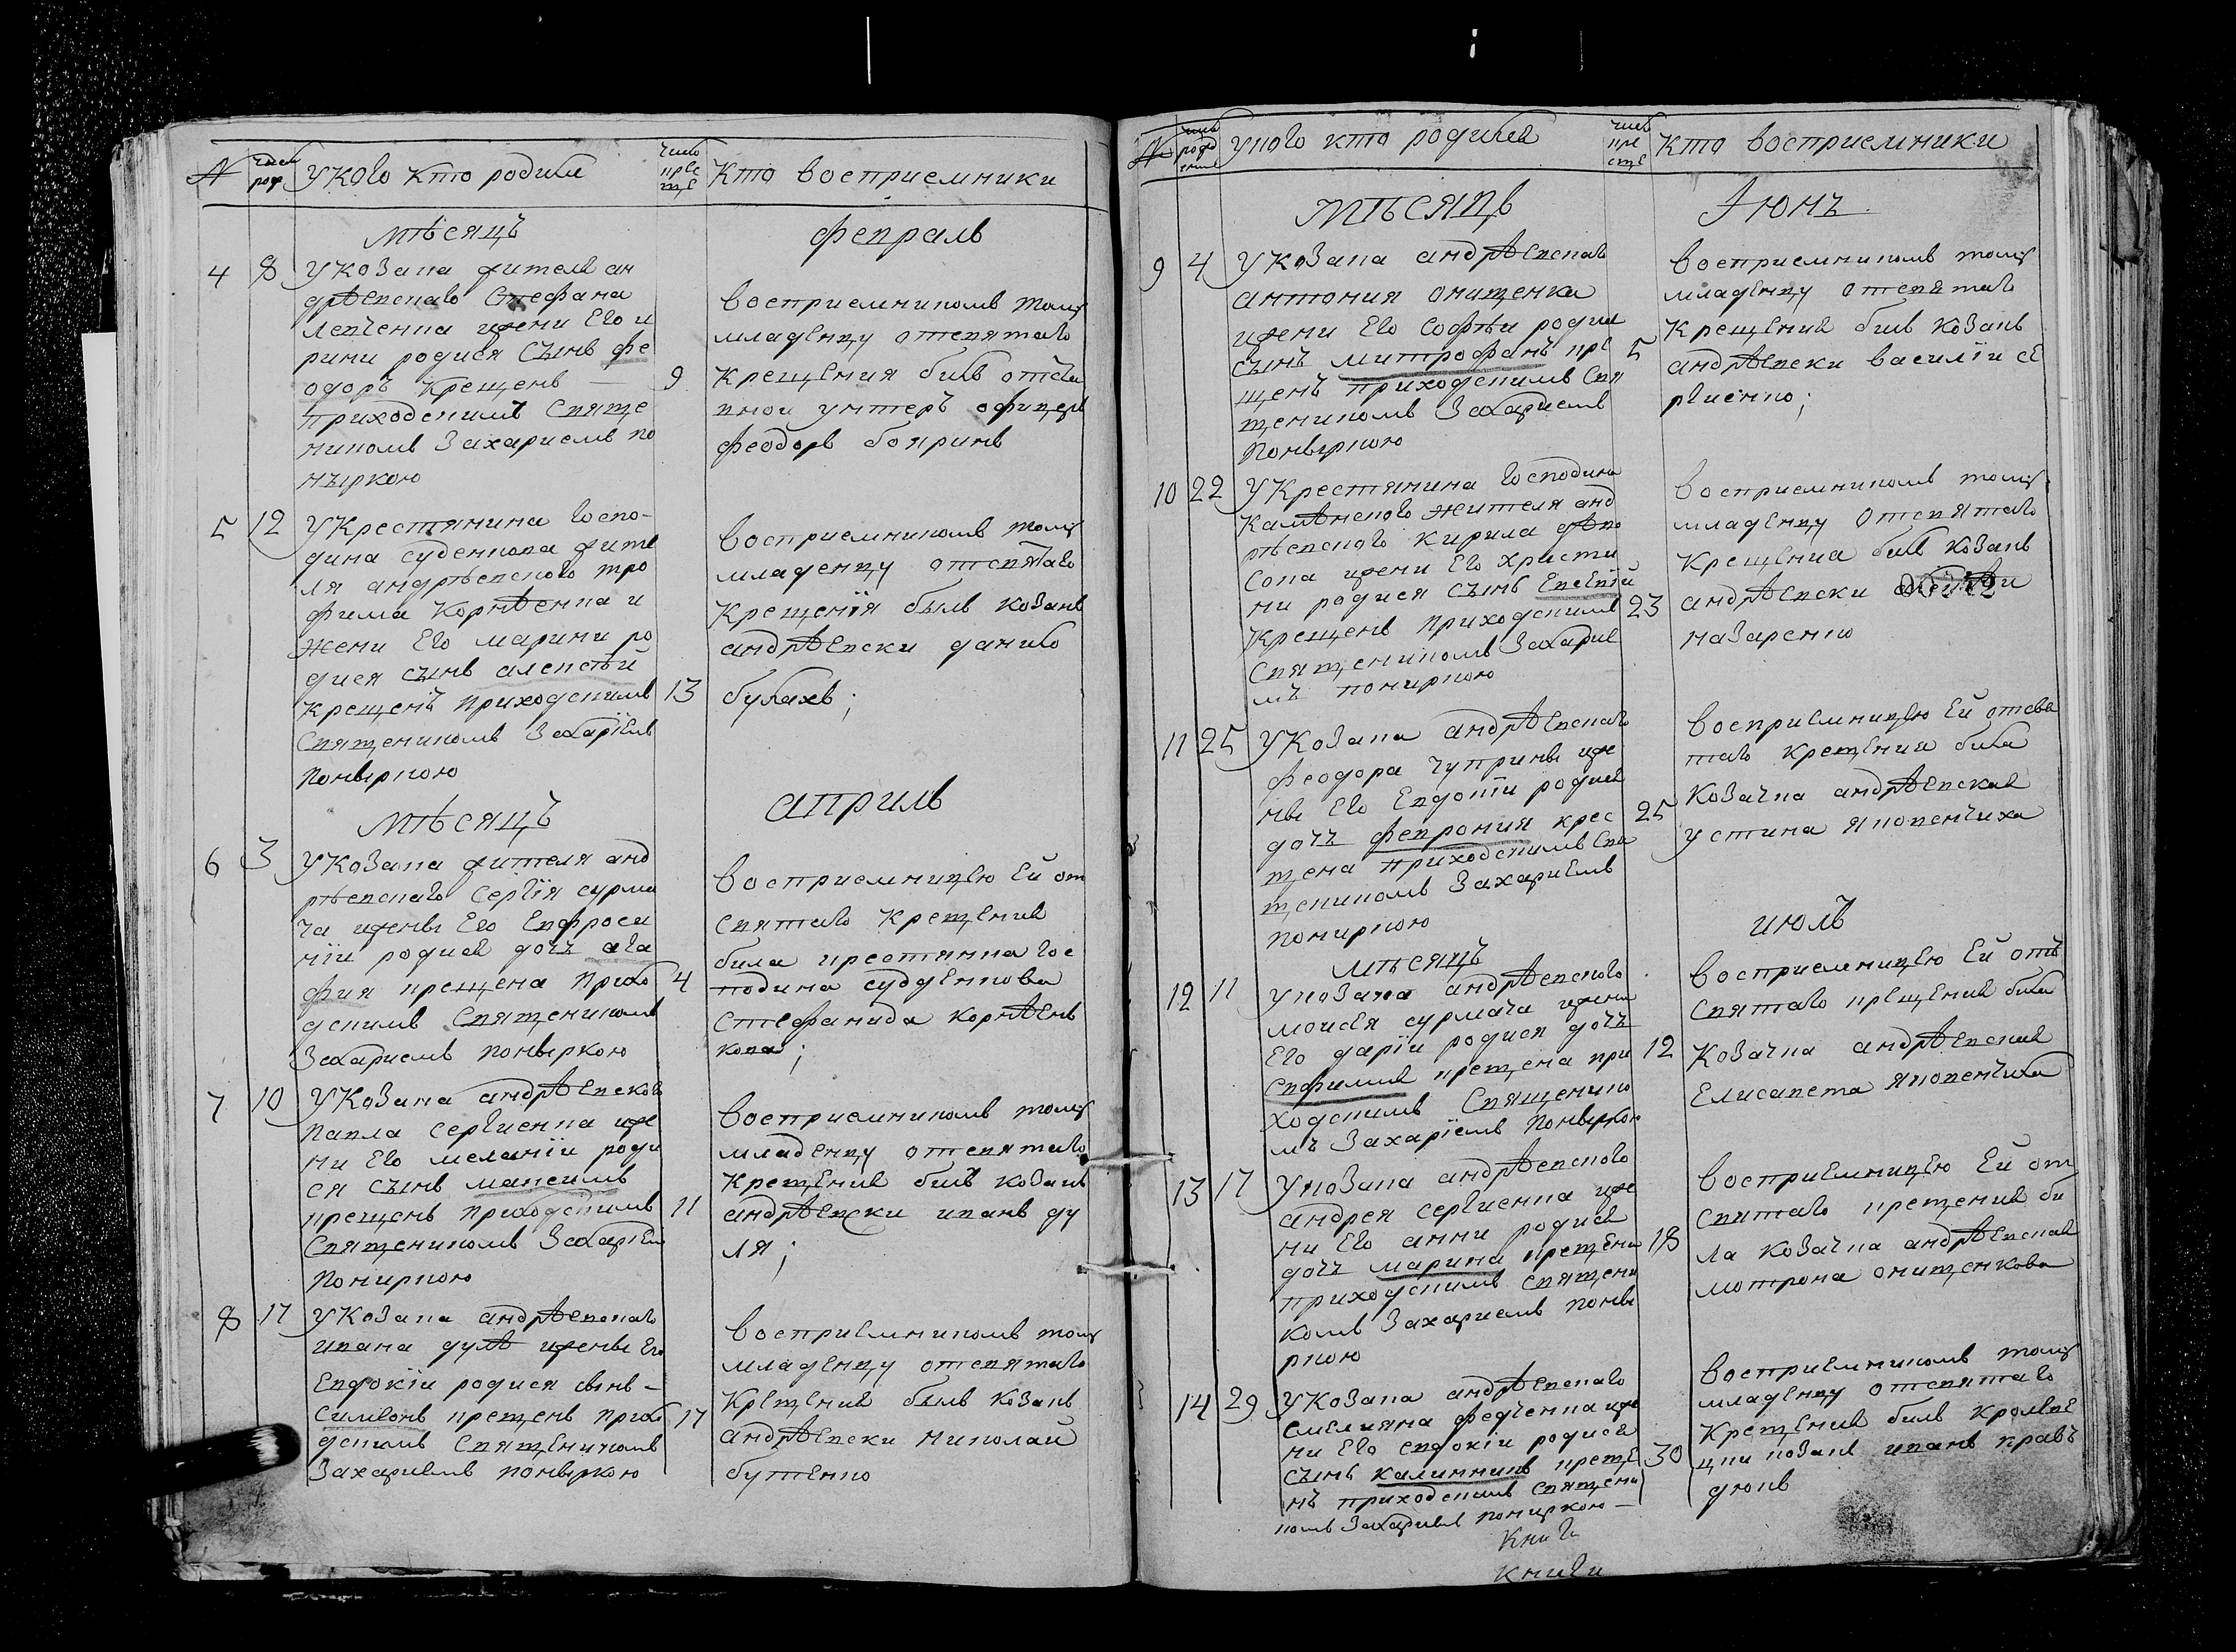 №
число рож
У кого кто родился
число креще
Кто восприемники
мѣсяцъ
февраль
4
8
У козака жителя ан
дрѣевскаго Стефана
Левченка жени Его и
рини родися сынъ фе
одоръ крещенъ —
приходскимъ Свяще
никомъ Захариемъ по
ныркою
9
восприемникомъ тому
младенцу отсвятаго
крещения билъ отста
вной унтеръ офицеръ
феодоръ бояринъ
5
12
У крестянина госпо-
дина суденкова жите
ля андрѣевского тро
фима Корнѣенка и
жени Его марини ро
дися сынъ алексѣй
крещенъ приходскимъ
Священикомъ Захаріемъ
Поныркою
13
восприемникомъ тому
младенцу отсвятаго
крещенія былъ козакъ
андрѣевски данило
булахъ;
мѣсяцъ
априль
6
3
У козака жителя анд
рѣевскаго Сергія сурма
ча иженьі Его Евфроси
ніи родися дочъ ага
фия крещена прихо
дскимъ Священикомъ
Захариемъ понвіркою
4
восприемницею Ей от
святаго крещения
била крестянка гос
подина судденкова
Стефанида корнѣенъ
кова;
7
10
У козака андрѣевского
Павла сергиенка иже
ни Его меланіи роди
ся сынъ максимъ
крещенъ приходскимъ
Священикомъ Захарием
Пониркою
11
восприемникомъ тому
младенцу отсвятаго
крещения билъ козакъ
андрѣевски иванъ ду
ля;
8
17
У козака андрѣевскаго
ивана дулѣ иженьі Его
Евдокіи родися сынъ —
Симеонъ крещенъ прихо
дскимъ Священикомъ
Захариемъ понвіркою
17
восприемникомъ тому
младенцу отсвятаго
крещения былъ козакъ
андрѣевски николай
бутенко
№
число рождения
У кого кто родился
число креще
кто восприемники
мѣсяцъ
Іюнъ
9
4
У козака андрѣевскаго
антония онищенка
ижени Его Софѣи родися
сынъ митрофанъ кре
щенъ приходскимъ Свя
щеникомъ Захариемъ
Понвіркою
5
восприемникомъ тому
младенцу отсвятаго
крещения билъ козакъ
андрѣевски василій се
ргиенко;
10
22
У крестянина господина
Камѣнского жителя анд
рѣевского кирила
сона ижени Его христи
ни родися сынъ Евсевій
крещенъ приходскимъ
Священикомъ Захарие
мъ пониркою
23
восприемникомъ тому
младенцу отсвятаго
крещения билъ козакъ
андрѣевски
назаренко
11
25
У козака андрѣевскаго
феодора чуприньі иже
ньі Его Евдокіи родися
дочъ феврония крес
щена приходскимъ Свя
щеникомъ Захариемъ
пониркою
25
восприемницею Ей отсвя
таго крещения била
козачка андрѣевская
устина яковенчиха
мѣсяцъ
июлъ
12
11
У козака андрѣевского
моисея сурмача ижени
Его даріи родися дочъ
Евфимия крещена при
ходскимъ Священико
мъ Захаріемъ Понвіркою
12
восприемницею Ей отъ
Святаго крещения била
козачка андрѣевская
Елисавета яковенчиха
13
17
У козака андрѣевского
андрея сергиенка иже
ни Его анни родися
дочъ марина крещена
приходскимъ Священи
комъ Захариемъ понві
ркою
18
восприемницею Ей от
Святаго крещения би
ла козачка андрѣевская
мотрона онищенкова
14
29
У козака андрѣевскаго
емелияна федченка иже
ни Его евдокіи родися
сынъ калинникъ креще
нъ приходскимъ Священи
комъ Захариемъ пониркою —
30
восприемникомъ тому
младенцу отсвятаго
крещения билъ кролеве
цки козакъ иванъ кравъ
дюкъ
Книги
книги